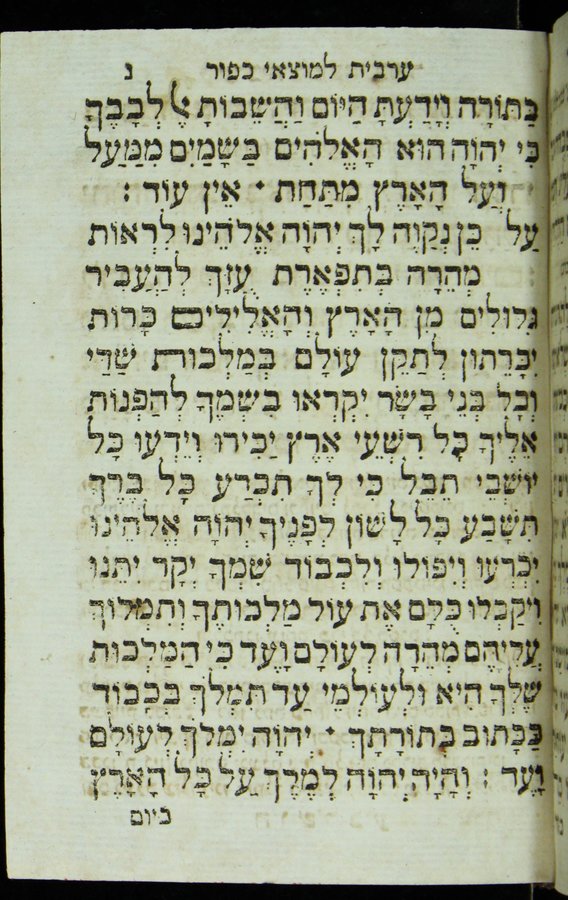 ערבית למוצאי כפור נ
בַּתּוֹרָה וְיָדַעְתָּ הַיּוֹם וְהֲשֵׁבוֹתָ אֶל לְבָבֶךָ
כִּי יְהוָֹה הוּא הָאֱלֹהִים בַּשָּׁמַיִם מִמַּעַל
וְעַל הָאָרֶץ מִתַּחַת · אֵין עוֹד :
עַל כֵּן נְקַוֶּה לָךְ יְהוָֹה אֱלֹהֵינוּ לִרְאוֹת
מְהֵרָה בְּתִפְאֶרֶת עֻזֶּךָ לְהַעֲבִיר
גִּלּוּלִים מִן הָאָרֶץ וְהָאֱלִילִים כָּרוֹת
יִכָּרֵתוּן לְתַקֵּן עוֹלָם בְּמַלְכוּת שַׁדַּי
וְכָל בְּנֵי בָשָׂר יִקְרְאוּ בִשְׁמֶךָ לְהַפְנוֹת
אֵלֶיךָ כָּל רִשְׁעֵי אֶרֶץ יַכִּירוּ וְיֵדְעוּ כָּל
יוֹשְׁבֵי תֵבֵל כִּי לְךָ תִּכְרַע כָּל בֶּרֶךְ
תִּשָּׁבַע כָּל לָשׁוֹן לְפָנֶיךָ יְהוָֹה אֱלֹהֵינוּ
יִכְרְעוּ וְיִפּוֹלוּ וְלִכְבוֹד שִׁמְךָ יְקָר יִתֵּנוּ
וִיקַבְּלוּ כֻלָּם אֶת עוֹל מַלְכוּתֶךָ וְתִמְלוֹךְ
עֲלֵיהֶם מְהֵרָה לְעוֹלָם וָעֶד כִּי הַמַּלְכוּת
שֶׁלְּךָ הִיא וּלְעוֹלְמֵי עַד תִּמְלֹךְ בְּכָבוֹד
כַּכָּתוּב בְּתוֹרָתֶךָ · יְהוָֹה יִמְלֹךְ לְעוֹלָם
וָעֶד : וְהָיָה יְהוָֹה לְמֶלֶךְ עַל כָּל הָאָרֶץ
ביום